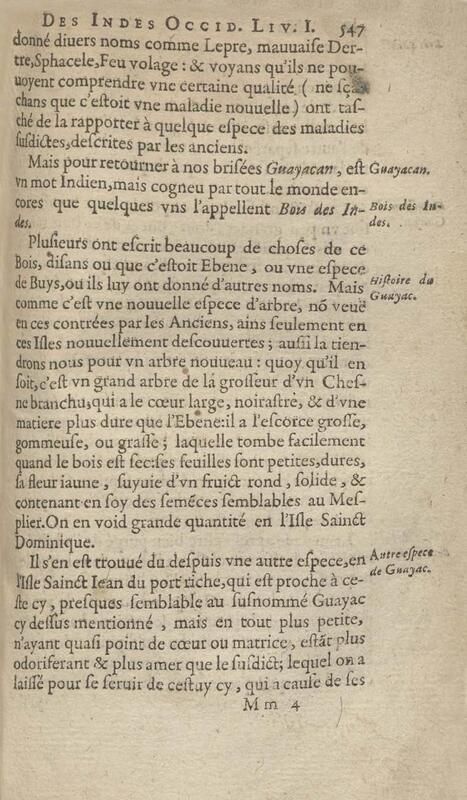 DES INDES OCCID. LIV. I. 547
donné diuers noms comme Lepre, mauuaise Der-
tre, Sphacele, Feu volage: & voyans qu'ils ne pou-
uoyent comprendre vne certaine qualité (ne sça-
chans que c'estoit vne maladie nouuelle) ont tas-
ché de la rapporter à quelque espece des maladies
susdictes, descrites par les anciens.
Mais pour retourner à nos brisées Guayacan, est
Guayacan.
vn mot Indien, mais cogneu par tout le monde en-
cores que quelques vns l'appellent Bois des In-
des.
Bois des In-
des.
Plusieurs ont escrit beaucoup de choses de ce
Bois, disans ou que c'estoit Ebene, ou vne espece
de Buys, ou ils luy ont donné d'autres noms. Mais
Histoire du
Guayac.
comme c'est vne nouuelle espece d'arbre, nō veuë
en ces contrées par les Anciens, ains seulement en
ces Isles nouuellement descouuertes; aussi la tien-
drons nous pour vn arbre nouueau: quoy qu'il en
soit, c'est vn grand arbre de la grosseur d'vn Ches-
ne branchu, qui a le cœur large, noirastre, & d'vne
matiere plus dure que l'Ebene: il a l'escorce grosse,
gommeuse, ou grasse; laquelle tombe facilement
quand le bois est sec: ses feuilles sont petites, dures,
sa fleur iaune, suyuie d'vn fruict rond, solide, &
contenant en soy des semēces semblables au Mes-
plier. On en void grande quantité en l'Isle Sainct
Dominique.
Il s'en est trouué du despuis vne autre espece, en
Autre espece
de Guayac.
l'Isle Sainct Iean du port riche, qui est proche à ce-
ste cy, presques semblable au susnommé Guayac
cy dessus mentionné, mais en tout plus petite,
n'ayant quasi point de cœur ou matrice, estāt plus
odoriferant & plus amer que le susdict; lequel on a
laissé pour se seruir de cestuy cy, qui a cause de ses
M m 4